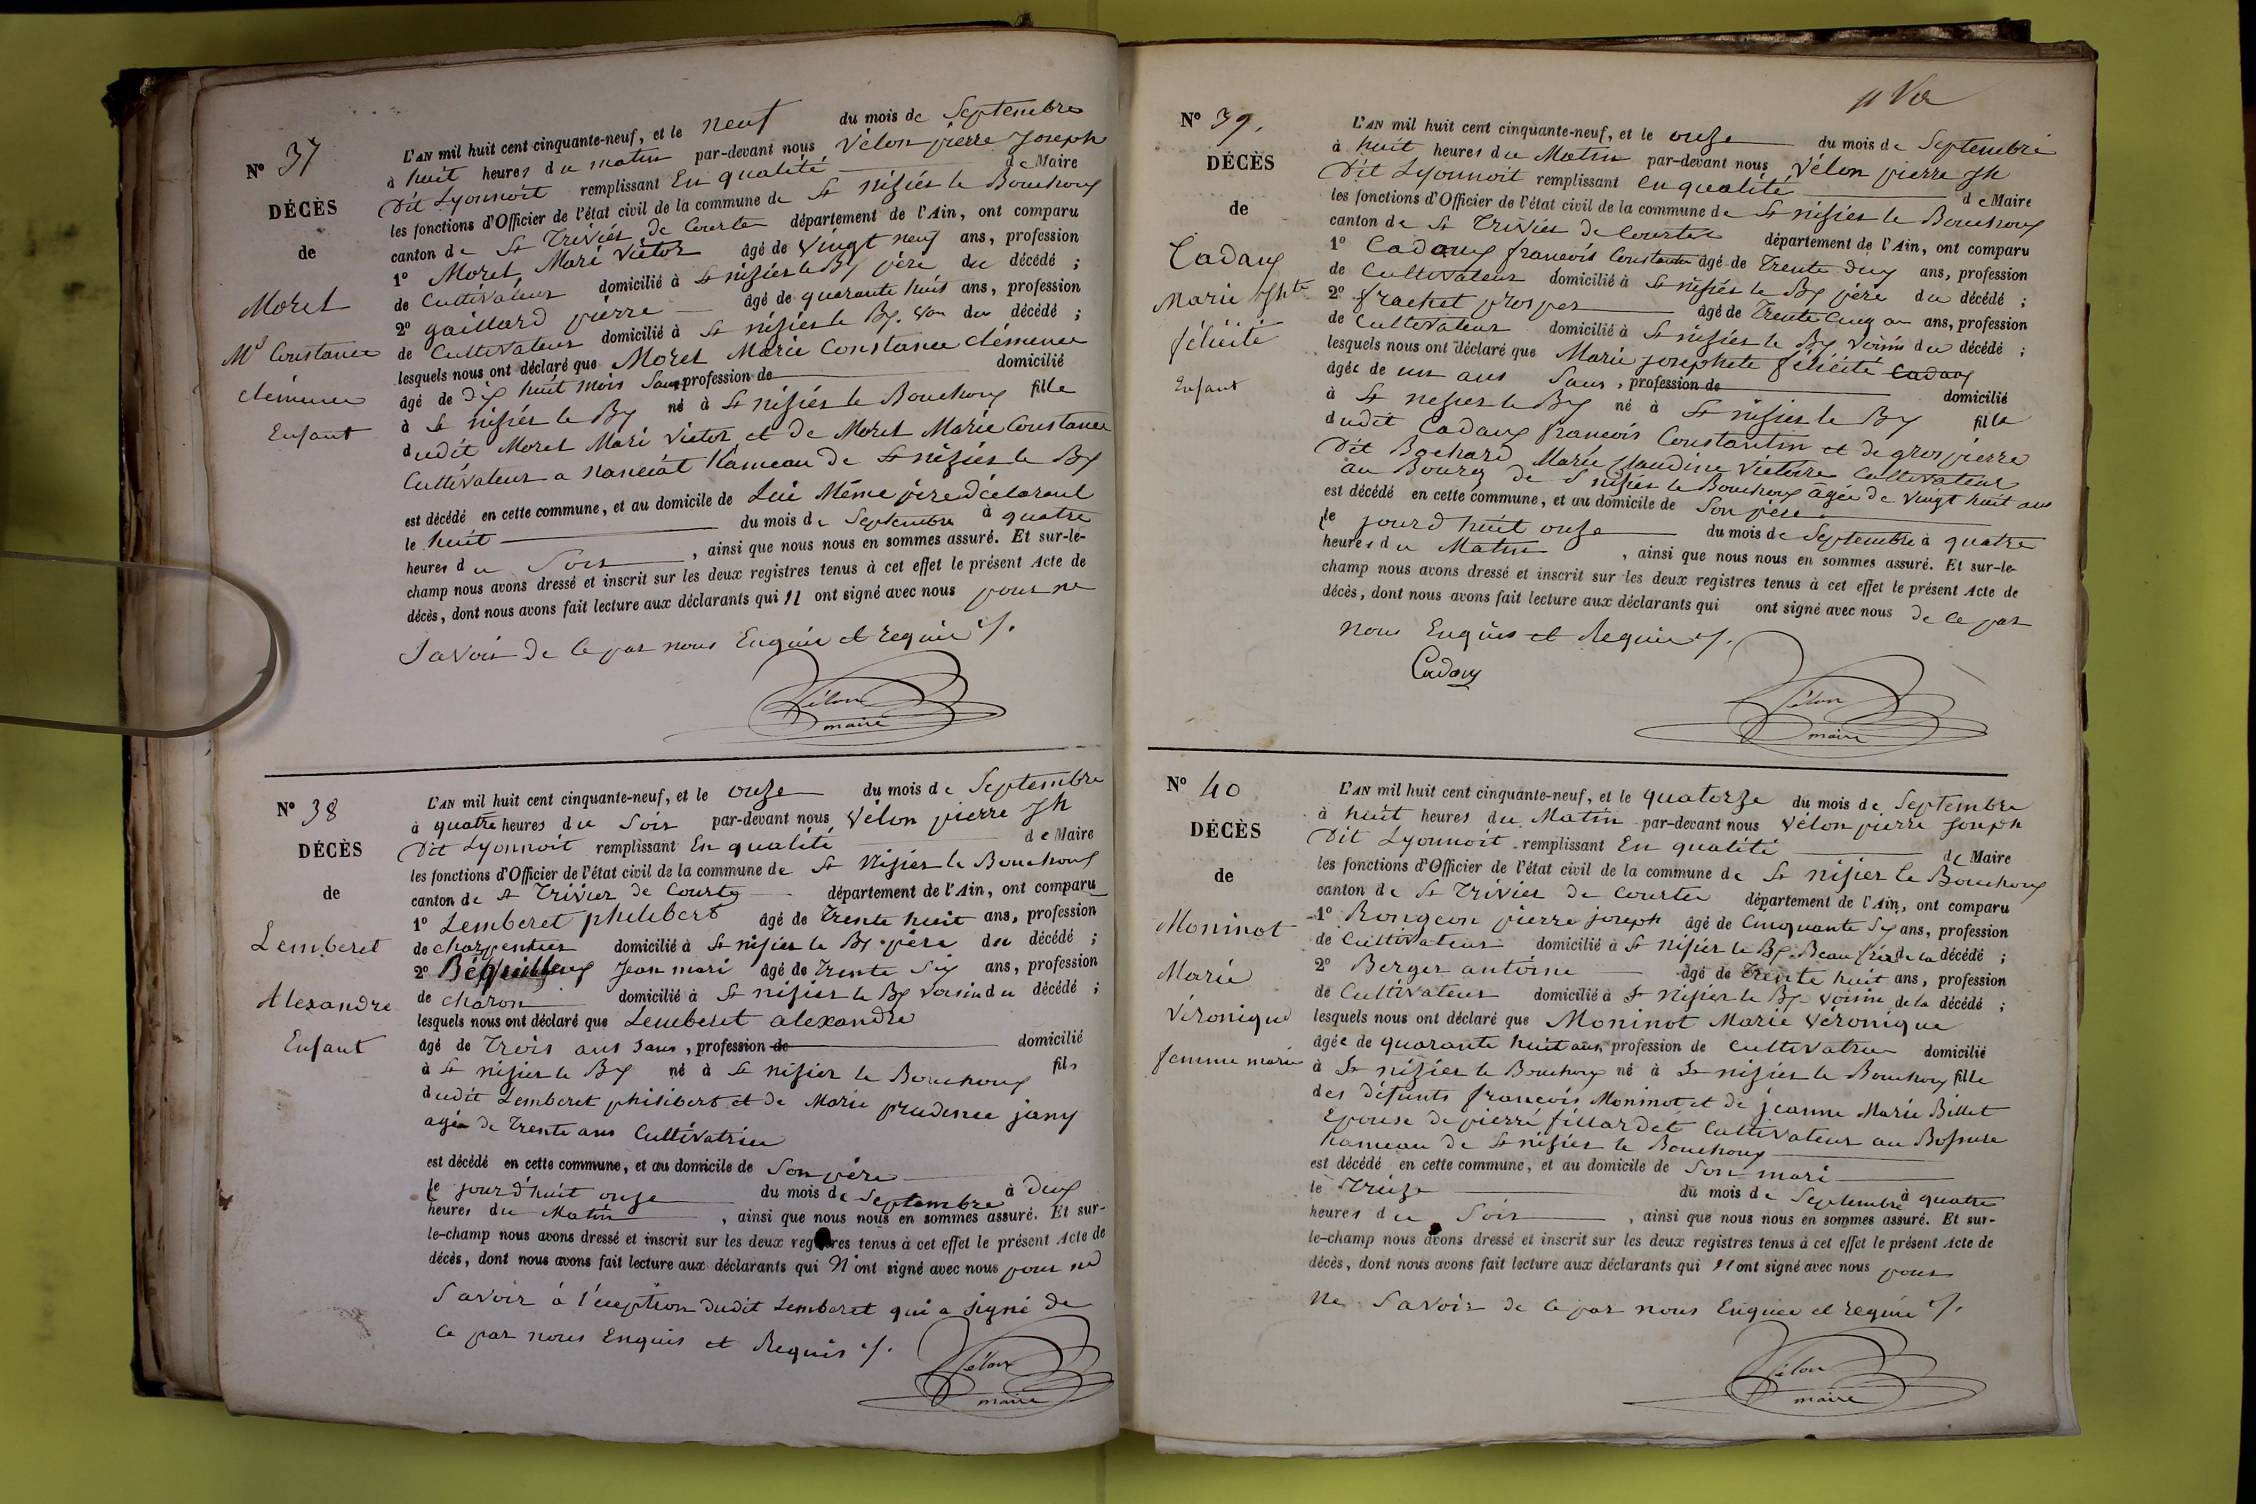 N° 37
DÉCÈS
de
Moret
Mie Constance
clémence
Enfant
L'AN mil huit cent cinquante-neuf, et le neuf du mois de Septembre
à huit heures du matin par-devant nous Vélon pierre Joseph
Dit Lyonnoit remplissant En qualité de Maire
les fonctions d'Officier de l'état civil de la commune de St nisiér le Bouchoux
canton de St Triviér de Courtes département de l'Ain, ont comparu
1° Moret Marie Victor âgé de Vingt neuf ans, profession
de Cultivateur domicilié à St nisier le Bx père du décédé ;
2° gaillard pierre âgé de quarante huit ans, profession
de Cultivateur domicilié à St nisier le Bx. Von du décédé ;
lesquels nous ont déclaré que Moret Marie Constance clémence
âgé de dix huit mois Sans profession de domicilié
à St nisiér le Bx né à St nisiér le Bouchoux fille
dudit Moret Marie Victor et de Moret Marie Constance
Cultivateur a nanciat hameau de St nisiér le Bx
est décédé en cette commune, et au domicile de Lui Même père déclarant
le huit du mois de Septembre à quatre
heures du Soir , ainsi que nous nous en sommes assuré. Et sur-le-
champ nous avons dressé et inscrit sur les deux registres tenus à cet effet le présent Acte de
décès, dont nous avons fait lecture aux déclarants qui n ont signé avec nous pour ne
Savoir de ce par nous Enquis et requis ./.
Vélon
maire
N° 38
DÉCÈS
de
Lemberet
Alexandre
Enfant
L'AN mil huit cent cinquante-neuf, et le onze du mois de Septembre
à quatre heures du Soir par-devant nous Vélon pierre Jh
Dit Lyonnoit remplissant En qualité de Maire
les fonctions d'Officier de l'état civil de la commune de St Nisier le Bouchoux
canton de St Trivier de Courtes département de l'Ain, ont comparu
1° Lemberet philibert âgé de Trente huit ans, profession
de charpentier domicilié à St nisier le Bx père du décédé ;
2° Jean mari âgé de Trente Six ans, profession
de charon domicilié à St nisier le Bx voisin du décédé ;
lesquels nous ont déclaré que Lemberet alexandre
âgé de Trois ans Sans , profession de domicilié
à St nisier le Bx né à St nisier le Bouchoux fils
dudit Lemberet philibert et de Marie prudence jany
agée de Trente ans Cultivatrice
est décédé en cette commune, et au domicile de Son père
le jourd'huit onze du mois de Septembre à dux
heures du Matin , ainsi que nous nous en sommes assuré. Et sur-
le-champ nous avons dressé et inscrit sur les deux registres tenus à cet effet le présent Acte de
décès, dont nous avons fait lecture aux déclarants qui N ont signé avec nous pour ne
Savoir à l'éxeption dudit Lemberet qui a signé de
ce par nous Enquis et Requis ./.
Vélon
maire
N° 39.
DÉCÈS
de
Cadoux
Marie Jphte
félicité
Enfant
L'AN mil huit cent cinquante-neuf, et le onze du mois de Septembre
à huit heures du Matin par-devant nous Vélon pierre Jh
Dit Lyonnoit remplissant en qualité de Maire
les fonctions d'Officier de l'état civil de la commune de St nisier le Bouchoux
canton de St Trivier de Courtes département de l'Ain, ont comparu
1° Cadoux francois Constantin âgé de Trente dux ans, profession
de Cultivateur domicilié à St nisiér le Bx père du décédé ;
2° frachet prosper âgé de Trente Cinq an ans, profession
de Cultivateur domicilié à St nisiér le Bx Voisin du décédé ;
lesquels nous ont déclaré que Marie josephete félicité Cadoux
âgée de un ans Sans , profession de domicilié
à St nisier le Bx né à St nisier le Bx fille
dudit Cadoux francois Constantin et de gros pierre
Dit Bochard Marie Claudine Victoire Cultivateur
au Bourg de St nisier le Bouchoux agée de Vingt huit ans
est décédé en cette commune, et au domicile de Son père
le jourd'huit onze du mois de Septembre à quatre
heures du Matin , ainsi que nous nous en sommes assuré. Et sur-le-
champ nous avons dressé et inscrit sur les deux registres tenus à cet effet le présent Acte de
décès, dont nous avons fait lecture aux déclarants qui ont signé avec nous de ce par
nous Enquis et Requis ./.
Cadoux
Vélon
maire
N° 40
DÉCÈS
de
Moninot
Marie
Véronique
femme marié
L'AN mil huit cent cinquante-neuf, et le quatorze du mois de Septembre
à huit heures du Matin par-devant nous Vélon pierre Joseph
Dit Lyonnoit remplissant En qualité de Maire
les fonctions d'Officier de l'état civil de la commune de St nisier le Bouchoux
canton de St Trivier de Courtes département de l'Ain, ont comparu
1° Rongeon pierre joseph âgé de Cinquante Six ans, profession
de Cultivateur domicilié à St nisier le Bx Beau frère de la décédé ;
2° Berger antoine âgé de Trente huit ans, profession
de Cultivateur domicilié à St nisier le Bx voisin de la décédé ;
lesquels nous ont déclaré que Moninot Marie Véronique
âgée de quarante huit ans, profession de Cultivatrice domicilié
à St nisier le Bouchoux né à St nisier le Bouchoux fille
des défunts francois Moninot et de jeanne Marie Billet
Epouse de pierre fillardet Cultivateur au Bossure
hameau de St nisier le Bouchoux
est décédé en cette commune, et au domicile de Son mari
le Treize du mois de Septembre à quatre
heures du Soir , ainsi que nous nous en sommes assuré. Et sur-
le-champ nous avons dressé et inscrit sur les deux registres tenus à cet effet le présent Acte de
décès, dont nous avons fait lecture aux déclarants qui n ont signé avec nous pour
ne Savoir de ce par nous Enquis et requis ./.
Vélon
maire